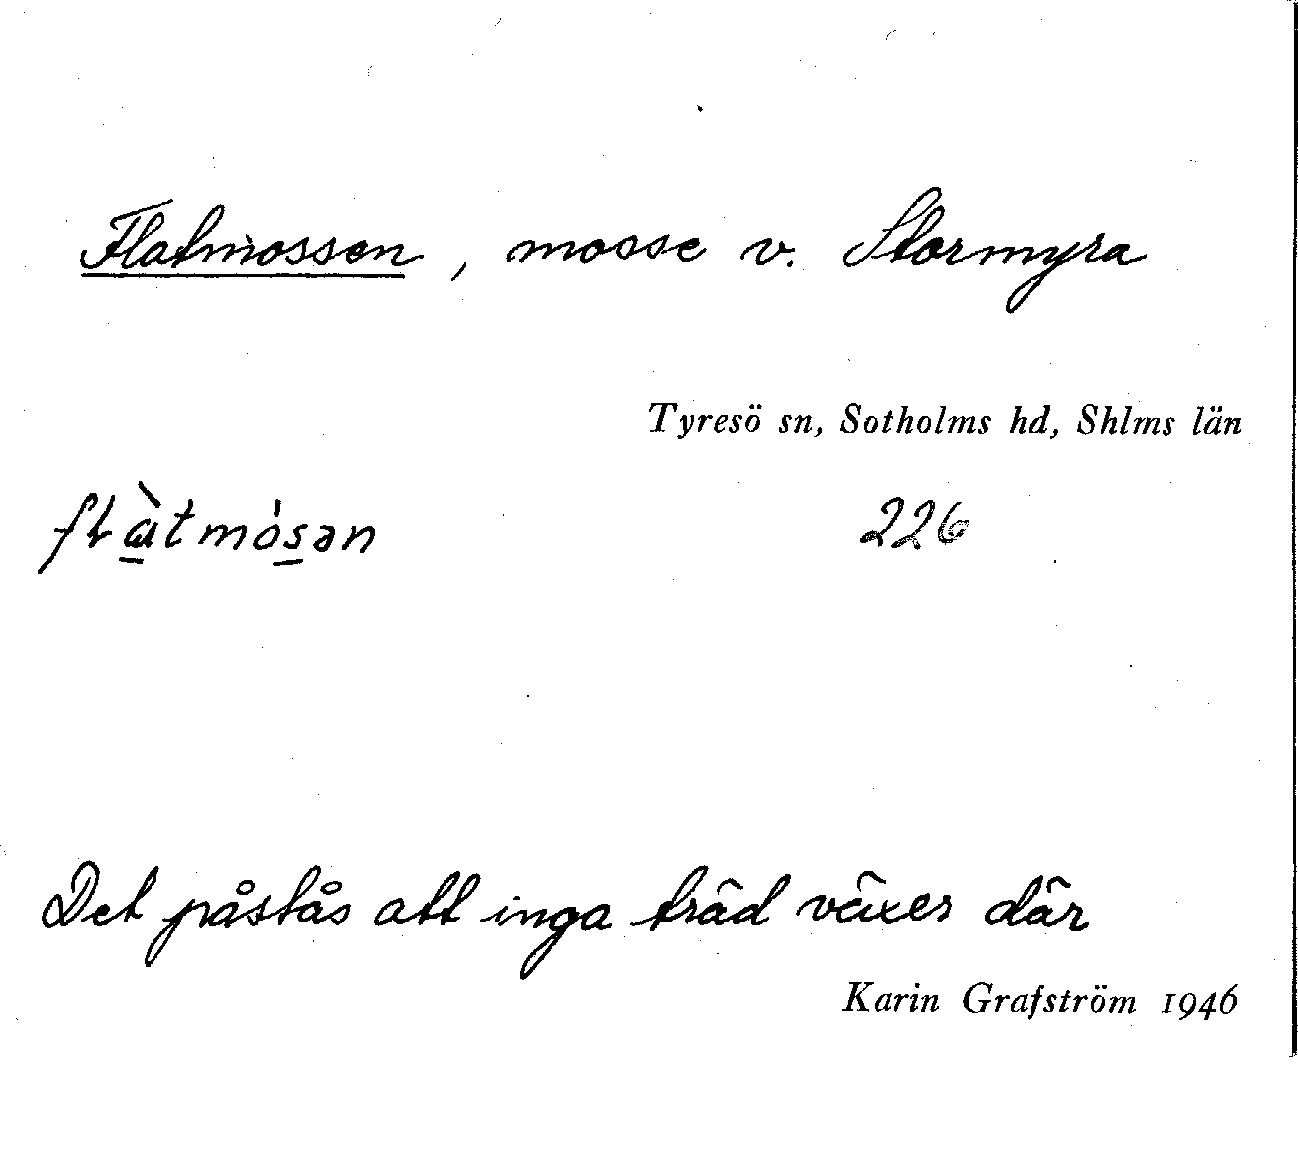 Flatmossen, mosse v. Stormyra
Tyresö sn, Sotholms hd, Shlms län
226
Det påstås att inga träd växer där
Karin Grafström 1946